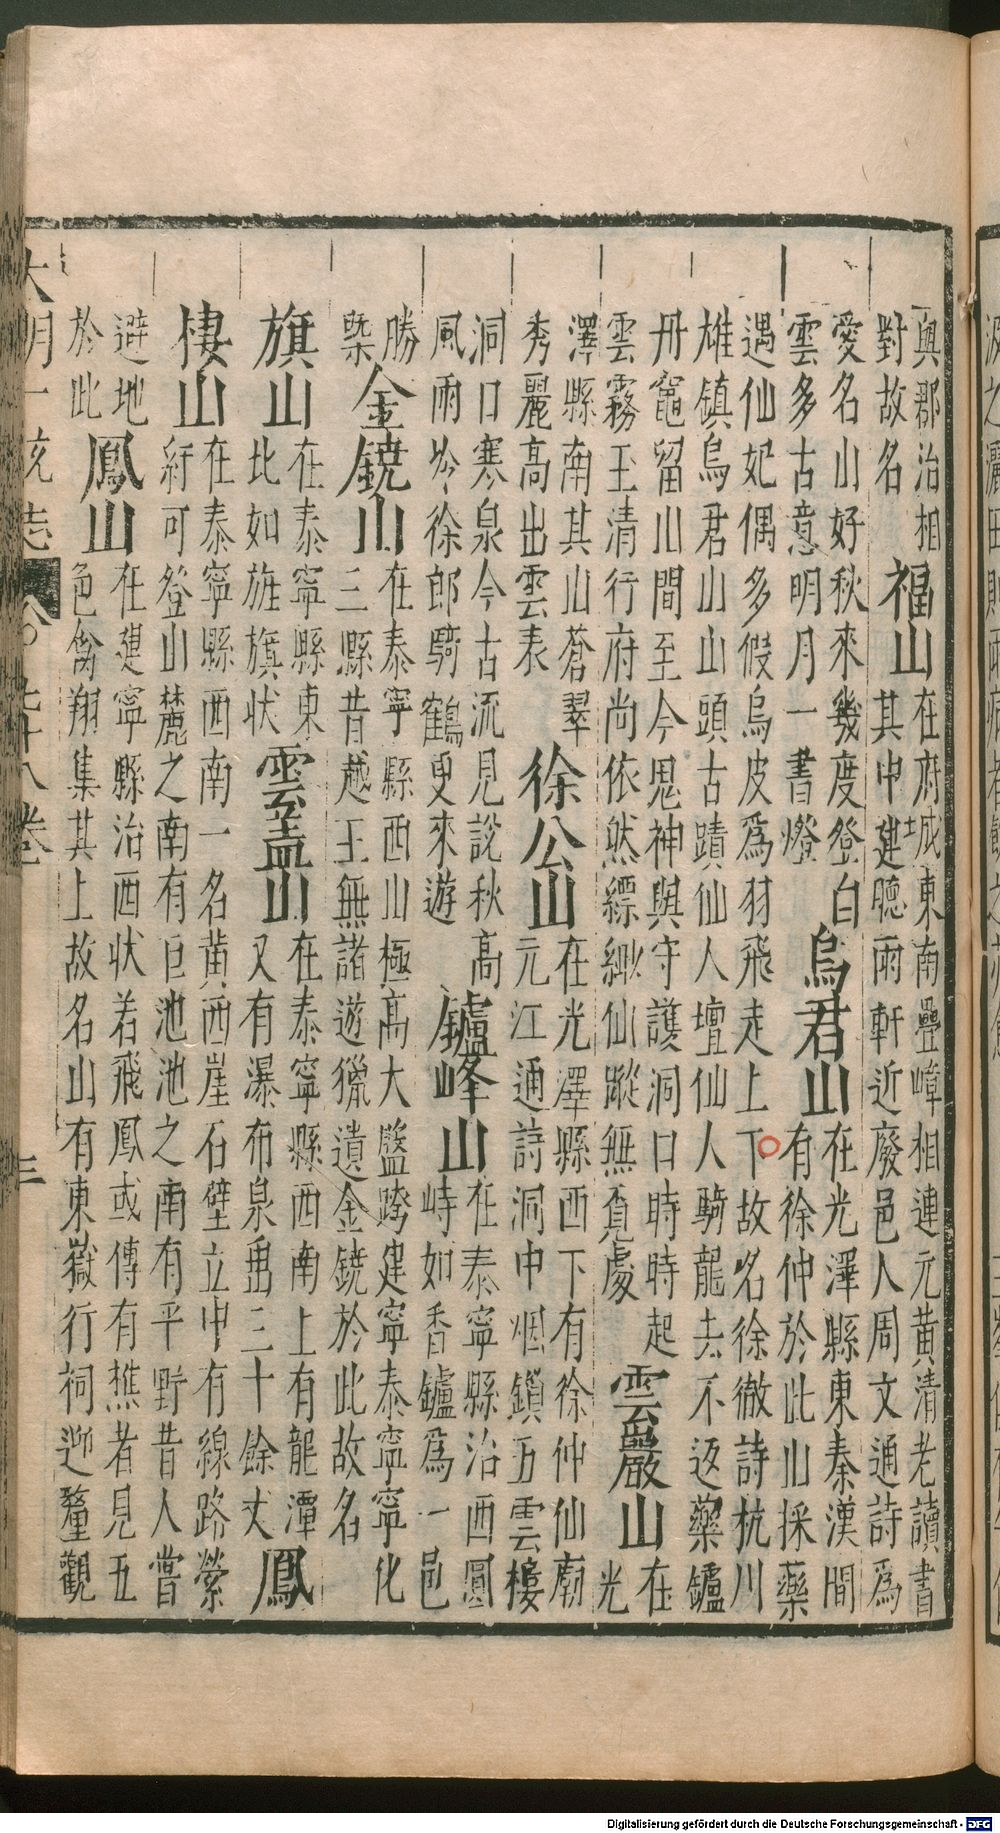 與郡治相
對故名
福山
在府城東南疊嶂相連元黃清老讀書
其中建聽雨軒近廢邑人周文通詩爲
愛名山好秋來幾度登白
雲多古意明月一書燈
烏君山
在光澤縣東秦漢間
有徐仲於此山採藥
遇仙妃偶多假烏皮爲羽飛走上下故名徐徹詩杭川
雄鎮烏君山山頭古蹟仙人壇仙人騎龍去不返藥鑪
丹竈留山間至今思神與守護洞口時時起
雲霧玉清行府尚依然縹緲仙蹤無覓處
雲巖山
在
光
澤縣南其山蒼翠
秀麗高出雲表
徐公山
在光澤縣西下有徐仲仙廟
元江通詩洞中烟鎖五雲樓
洞口寒泉今古流見說秋高
風雨吟徐郎騎鶴更來遊
鑪峰山
在泰寧縣治西圓
峙如香鑪爲一邑
勝
槩
金鐃山
在泰寧縣西山極高大盤跨建寧泰寧寧化
三縣昔越王無諸遊獵遺金鐃於此故名
旗山
在泰寧縣東
北如旌旗狀
雲蓋山
在泰寧縣西南上有龍潭
又有瀑布泉垂三十餘丈
鳳
棲山
在泰寧縣西南一名黃西崖石壁立中有線路縈
紆可登山麓之南有巨池池之南有平野昔人嘗
避地
於此
鳳山
在建寧縣治西狀若飛鳳或傳有樵者見五
色禽翔集其上故名山有東嶽行祠迎釐觀
大明一統志 七十八卷 三
Digitalisierung gefördert durch die Deutsche Forschungsgemeinschaft - DFG